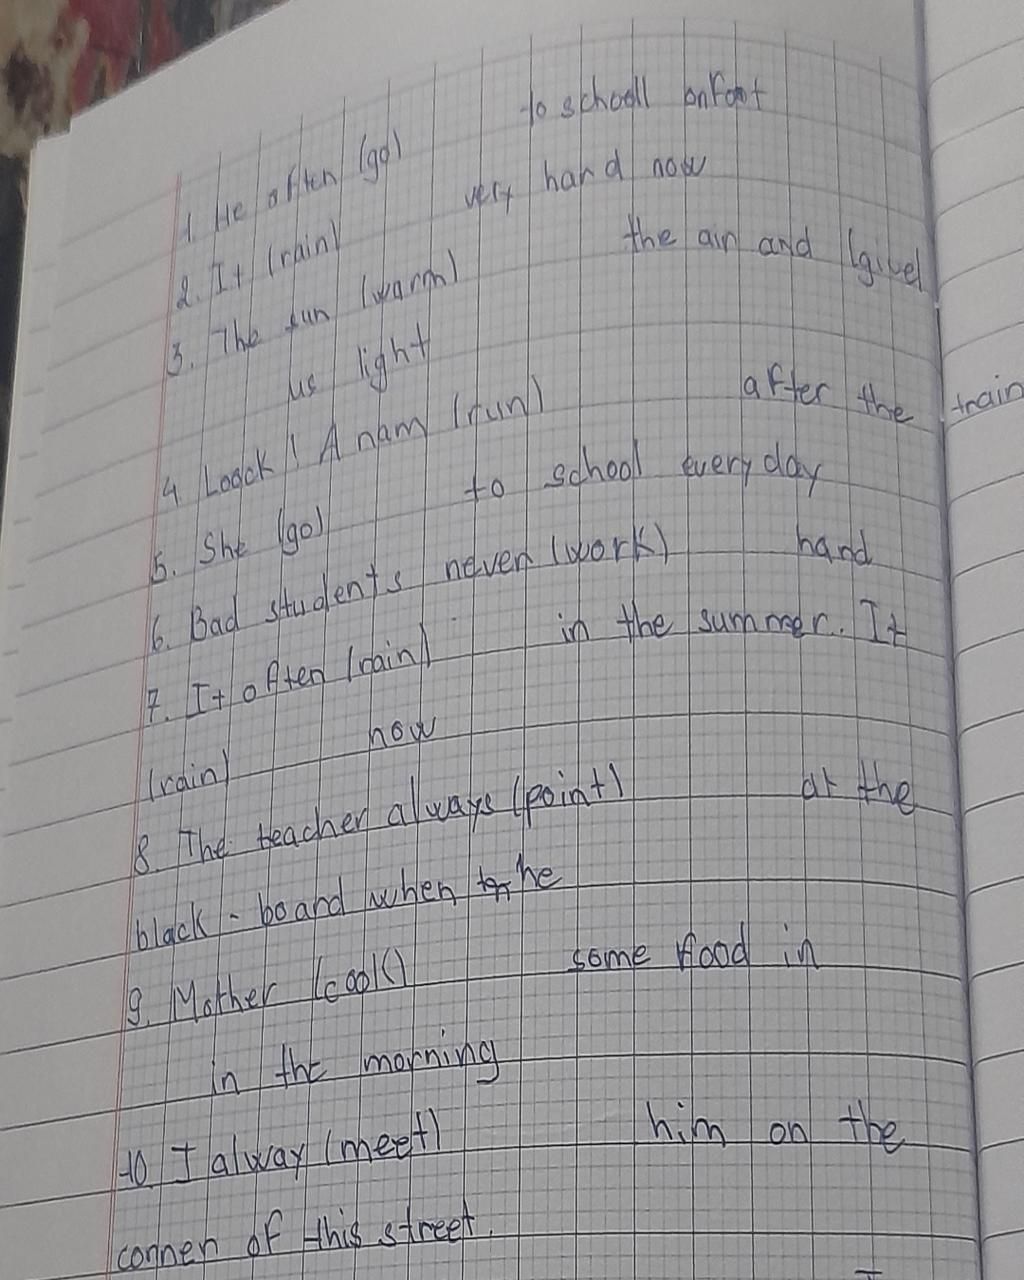 1 He often (go) to schoell onfoot
2. It (rain) very hand now
3. The sun (warm) the air and (give)
us light
4 Loock! A nam (run) after the train
5. She (go) to school every day
6. Bad students neven (work) hand
7. It often (rain) in the summer. It
(rain) now
8. The teacher always (point) at the
black - boand when he
9. Mother (cook) some food in
in the morning
10 I alway (meet) him on the
connen of this street.